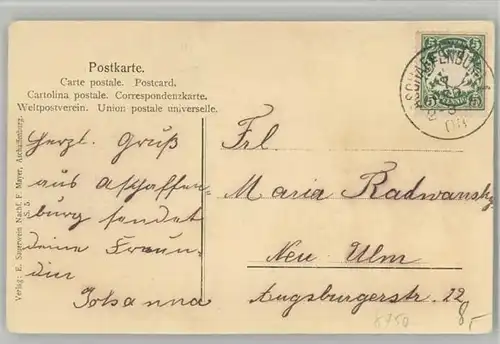 Postkarte.
Carte postale. Postcard.
Cartolina postale. Correspondenzkarte.
Weltpostverein. Union postale universelle.
Herzl. Gruß
aus Aschaffen"
burg sendet
deine Freun-
din
Johanna
Frl.
Maria Radwansky
Neu Ulm
Augsburgerstr. 22
Verlag: E. Sauerwein Nachf. F. Mayer, Aschaffenburg.
5
5
8750
8,-